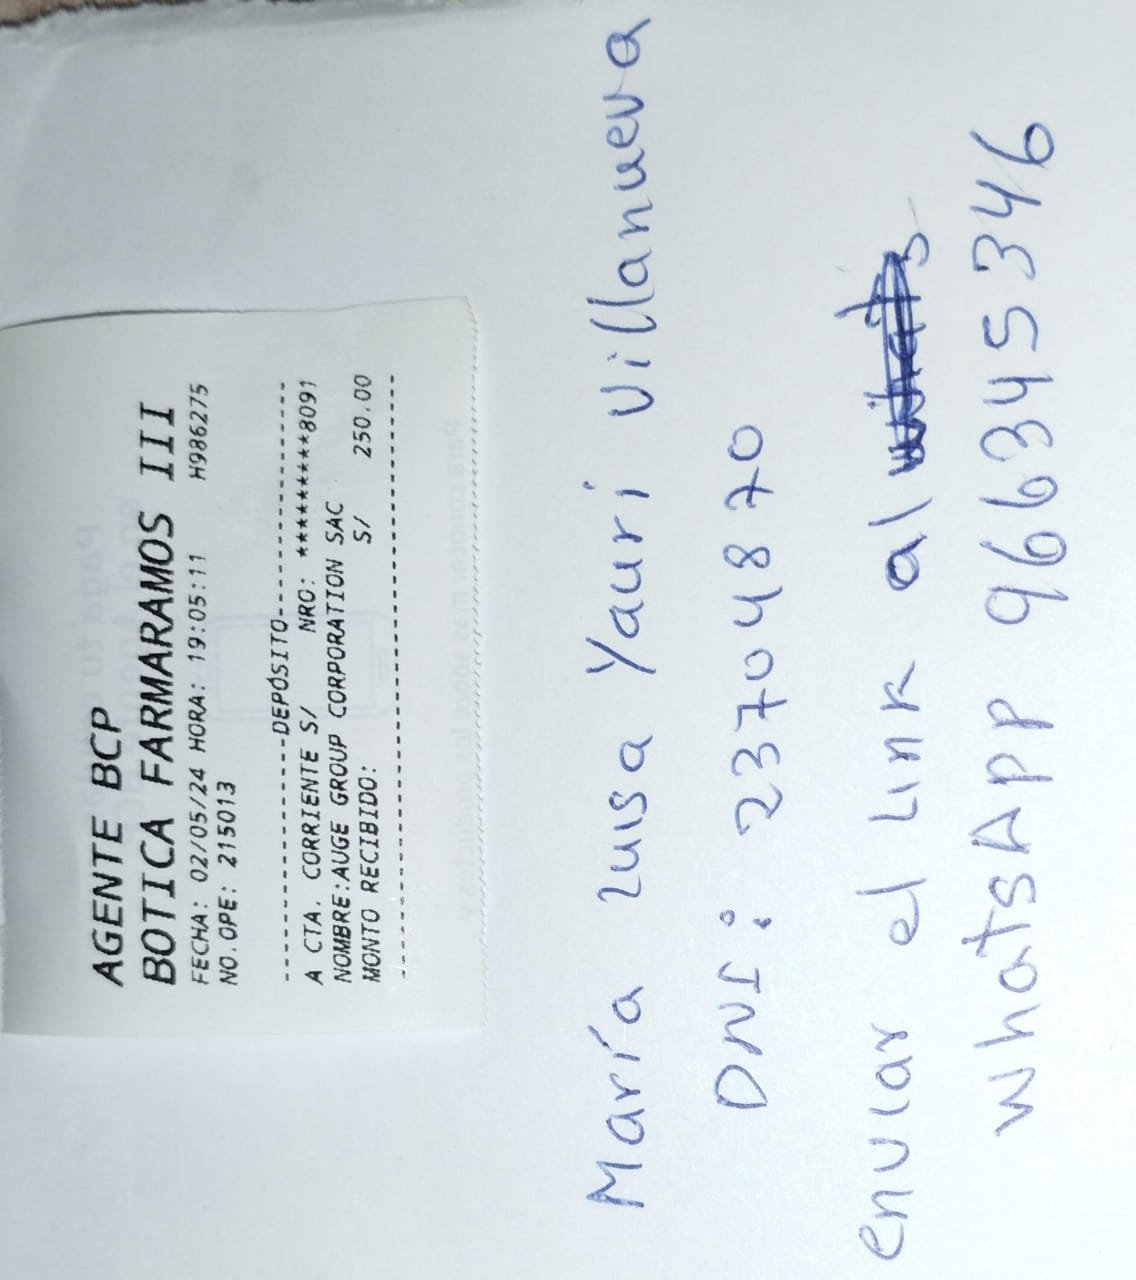 AGENTE BCP
BOTICA FARMARAMOS III
FECHA: 02/05/24 HORA: 19:05:11 H986275
NO.OPE: 215013
--------------------DEPÓSITO--------------------
A CTA. CORRIENTE S/ NRO: *********8091
NOMBRE:AUGE GROUP CORPORATION SAC
MONTO RECIBIDO: S/ 250.00
------------------------------------------------
María Luisa Yauri Villanueva
DNI: 23704870
enviar el Link al
WhatsApp 966345346